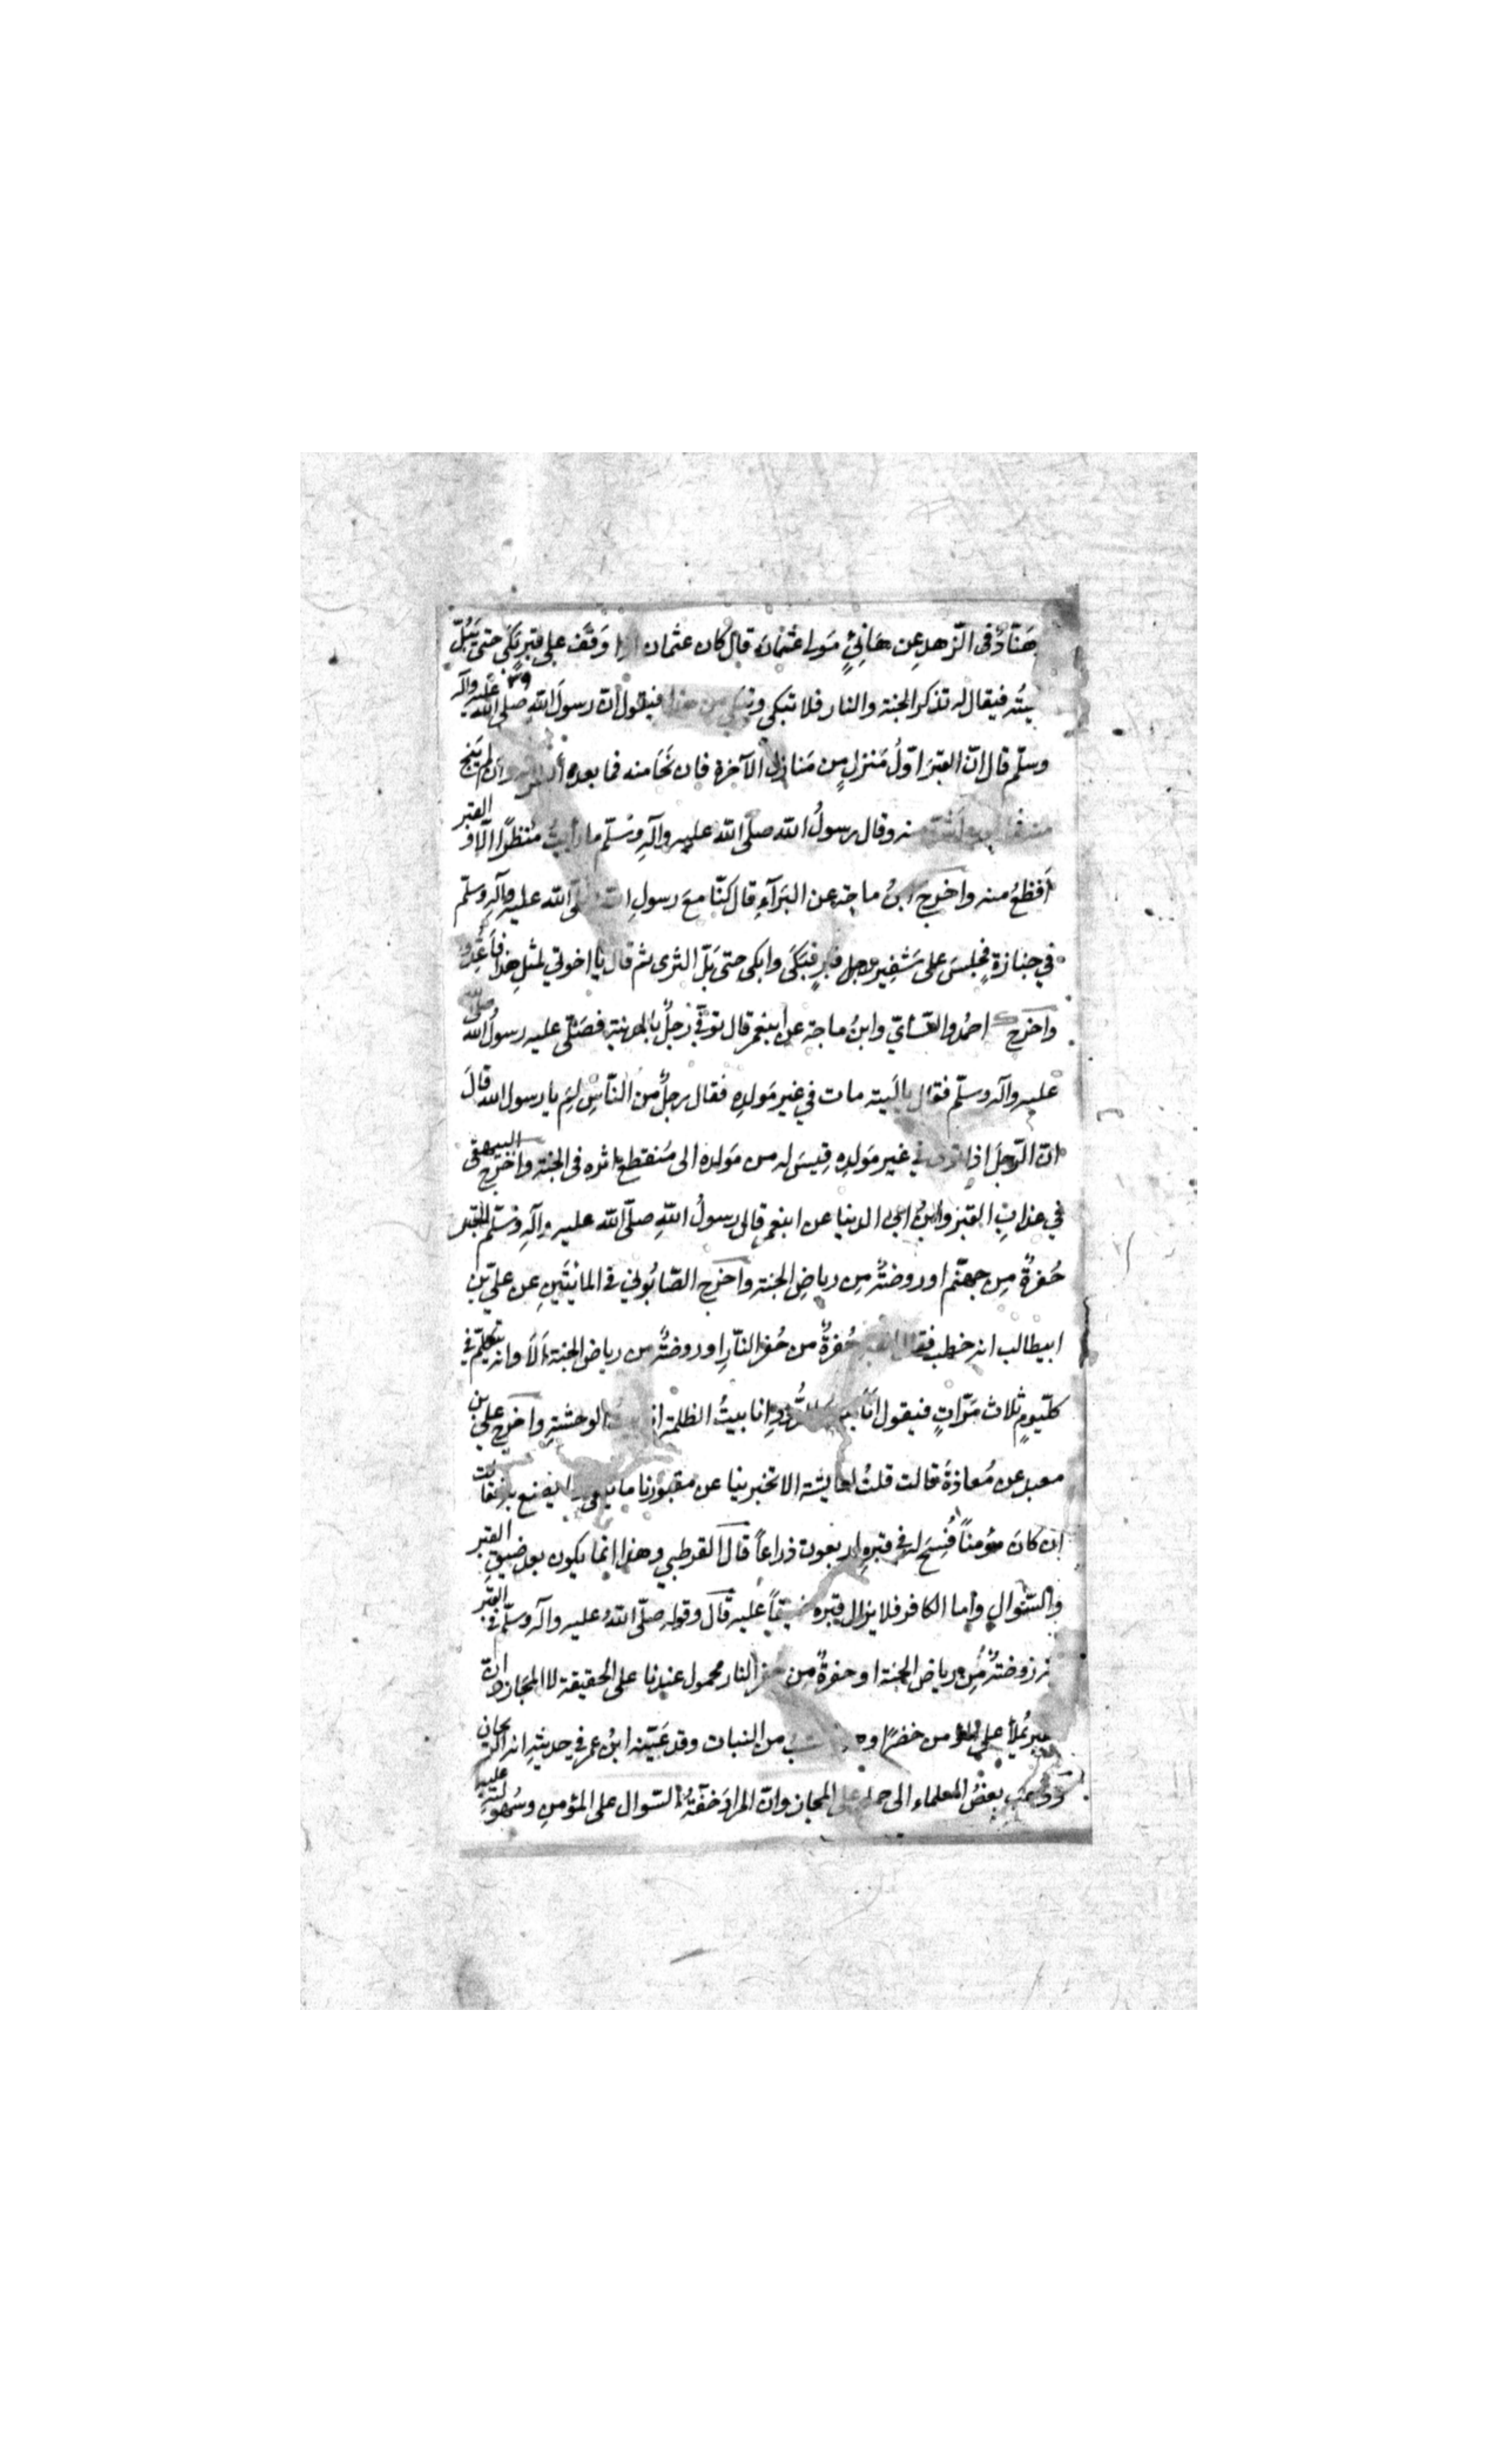 هَنّادٌ فی الزّهد عن هَانِئٍ مَولى عُثمان قال كان عثمان اذا وَقَف على قبرٍ بَكَى حتى يَبُلّ
لحيتُه فيقال له تذكر الجنة والنار فلا تبكى وتبكي من هذا فيقول انّ رسولَ اللهِ صلى الله عليه وآله
وسلّم قال انّ القبرَ اوّلُ مَنزلٍ من مَنازل الآخرة فان نَجَا منه فما بعده أيسر وان لم يَنج
منه فما بعده أشد منه وقال رسولُ الله صلى الله عليه وآلهِ وسّلم ما رأيتُ مُنظرًا الّا والقبر
أَفظعُ منه واخرج ابنُ ماجة عن البَرَآءِ قال كنّا معَ رسولِ الله صلّى الله عليه وآلِه وسلّم
في جنازةٍ فجلسَ على شَفِير قبرٍ فبَكَى وابكى حتى بَلّ الثرى ثم قال يا اخوتي لمثلِ هذا فأعدّوا
واخرج احمدُ والنّسائيّ وابنُ ماجة عن ابنعمر قال توفّي رجلٌ بالمدينة فصلّى عليه رسولُ الله صلى الله
عليه وآله وسلّم فقال ياليته مات في غير مَولدِه فقال رجلٌ من النّاس لِمَ يا رسول الله قالَ
انّ الرّجلَ اذا توفى في غير مَولدِه قِيسَ له من مَولده الى مُنقطع اثره فى الجنة واخرج البيهقى
في عذابِ القبر وابنُ ابي الدنيا عن ابنعمر قال رسولُ اللهِ صلّى الله عليه وآلهِ وسّلم القبر
حُفرةٌ مِن جهنّم او روضةٌ مِن رياضِ الجنة واخرج الصّابُوني في المائتَينِ عن عليّ بن
ابيطالب انه خطب فقال القبر حُفرةٌ من حُفر النّارِ او روضةٌ من رياض الجنة اَلاَ وانه يتكلّم في
كلّيومٍ ثلاث مَرّاتٍ فيقول اَنَا بيت الدُّودِ انا بيتُ الظلمة انا بيتُ الوحشةِ واخرج علي بن
معبد عن مُعاذةَ قالت قلتُ لعايشة الا تخبرينا عن مقبورنا ما يلقى وما يصنع به فقالت
إن كانَ مؤمناً فُسِحَ له في قبرِه اربعون ذراعاً قال القرطبي وهذا انّما يكون بعد ضيقِ القبر
والسّؤالِ واما الكافر فلا يزال قبره ضيقاً عليه قال وقوله صلّى اللهُ عليه وآله وسلّم في القبر
انه روضةٌ مِن رياض الجنة او حفرةٌ من حفر النار محمول عندنا على الحقيقة لا المجاز وانّ
القبر يُملأ على المؤمن خضرًا وهو العشب من النبات وقد عَيّنه ابنُ عمر في حديثهِ انه الريحان
وذهب بعضُ العلماء الى حمله على المجاز وانّ المرادَ خفّةُ السّوال على المؤمنِ وسُهولته عليه